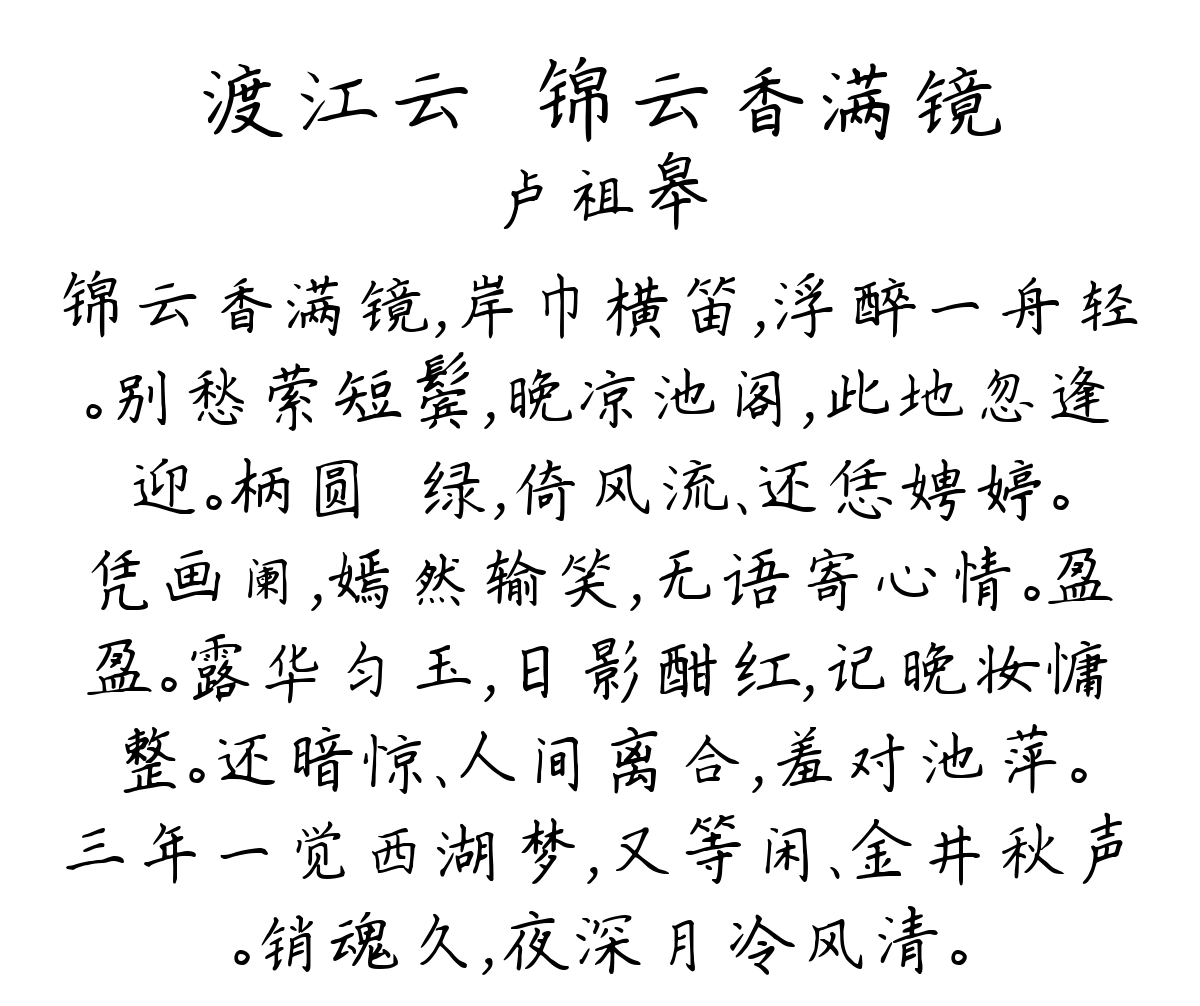 渡江云 锦云香满镜
卢祖皋
锦云香满镜,岸巾横笛,浮醉一舟轻
。别愁萦短鬓,晚凉池阁,此地忽逢
迎。柄圆 绿,倚风流、还恁娉婷。
凭画阑,嫣然输笑,无语寄心情。盈
盈。露华匀玉,日影酣红,记晚妆慵
整。还暗惊、人间离合,羞对池萍。
三年一觉西湖梦,又等闲、金井秋声
。销魂久,夜深月冷风清。